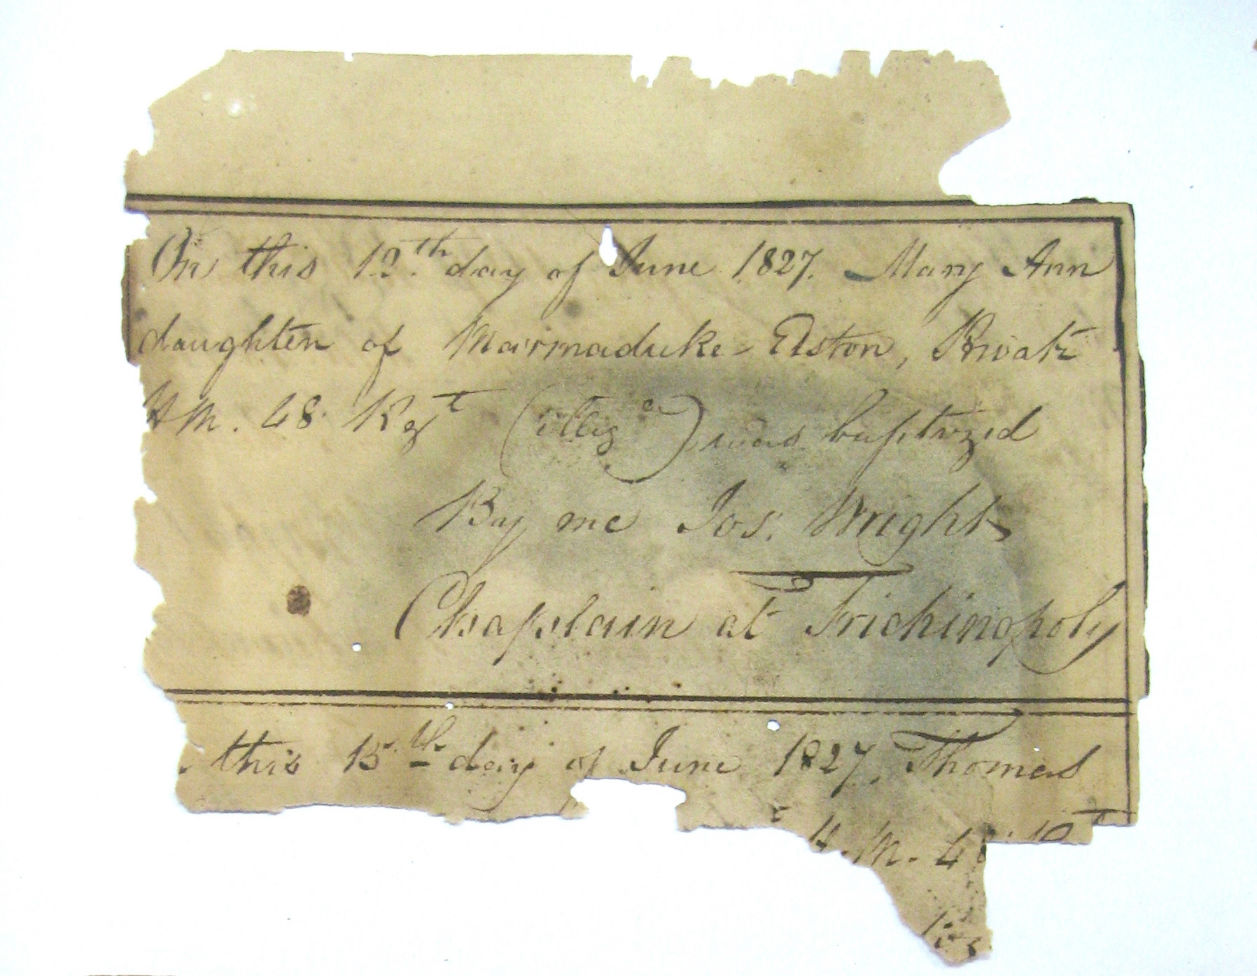 On this 12th day of June 1827. Mary Ann
daughter of Marmaduke Elston, Private
H.M. 48 Regt (illeg.e) was baptized
By me Jos. Wright
Chaplain at Trichinopoly
this 15th day of June 1827, Thomas
H.M. 48 Rt